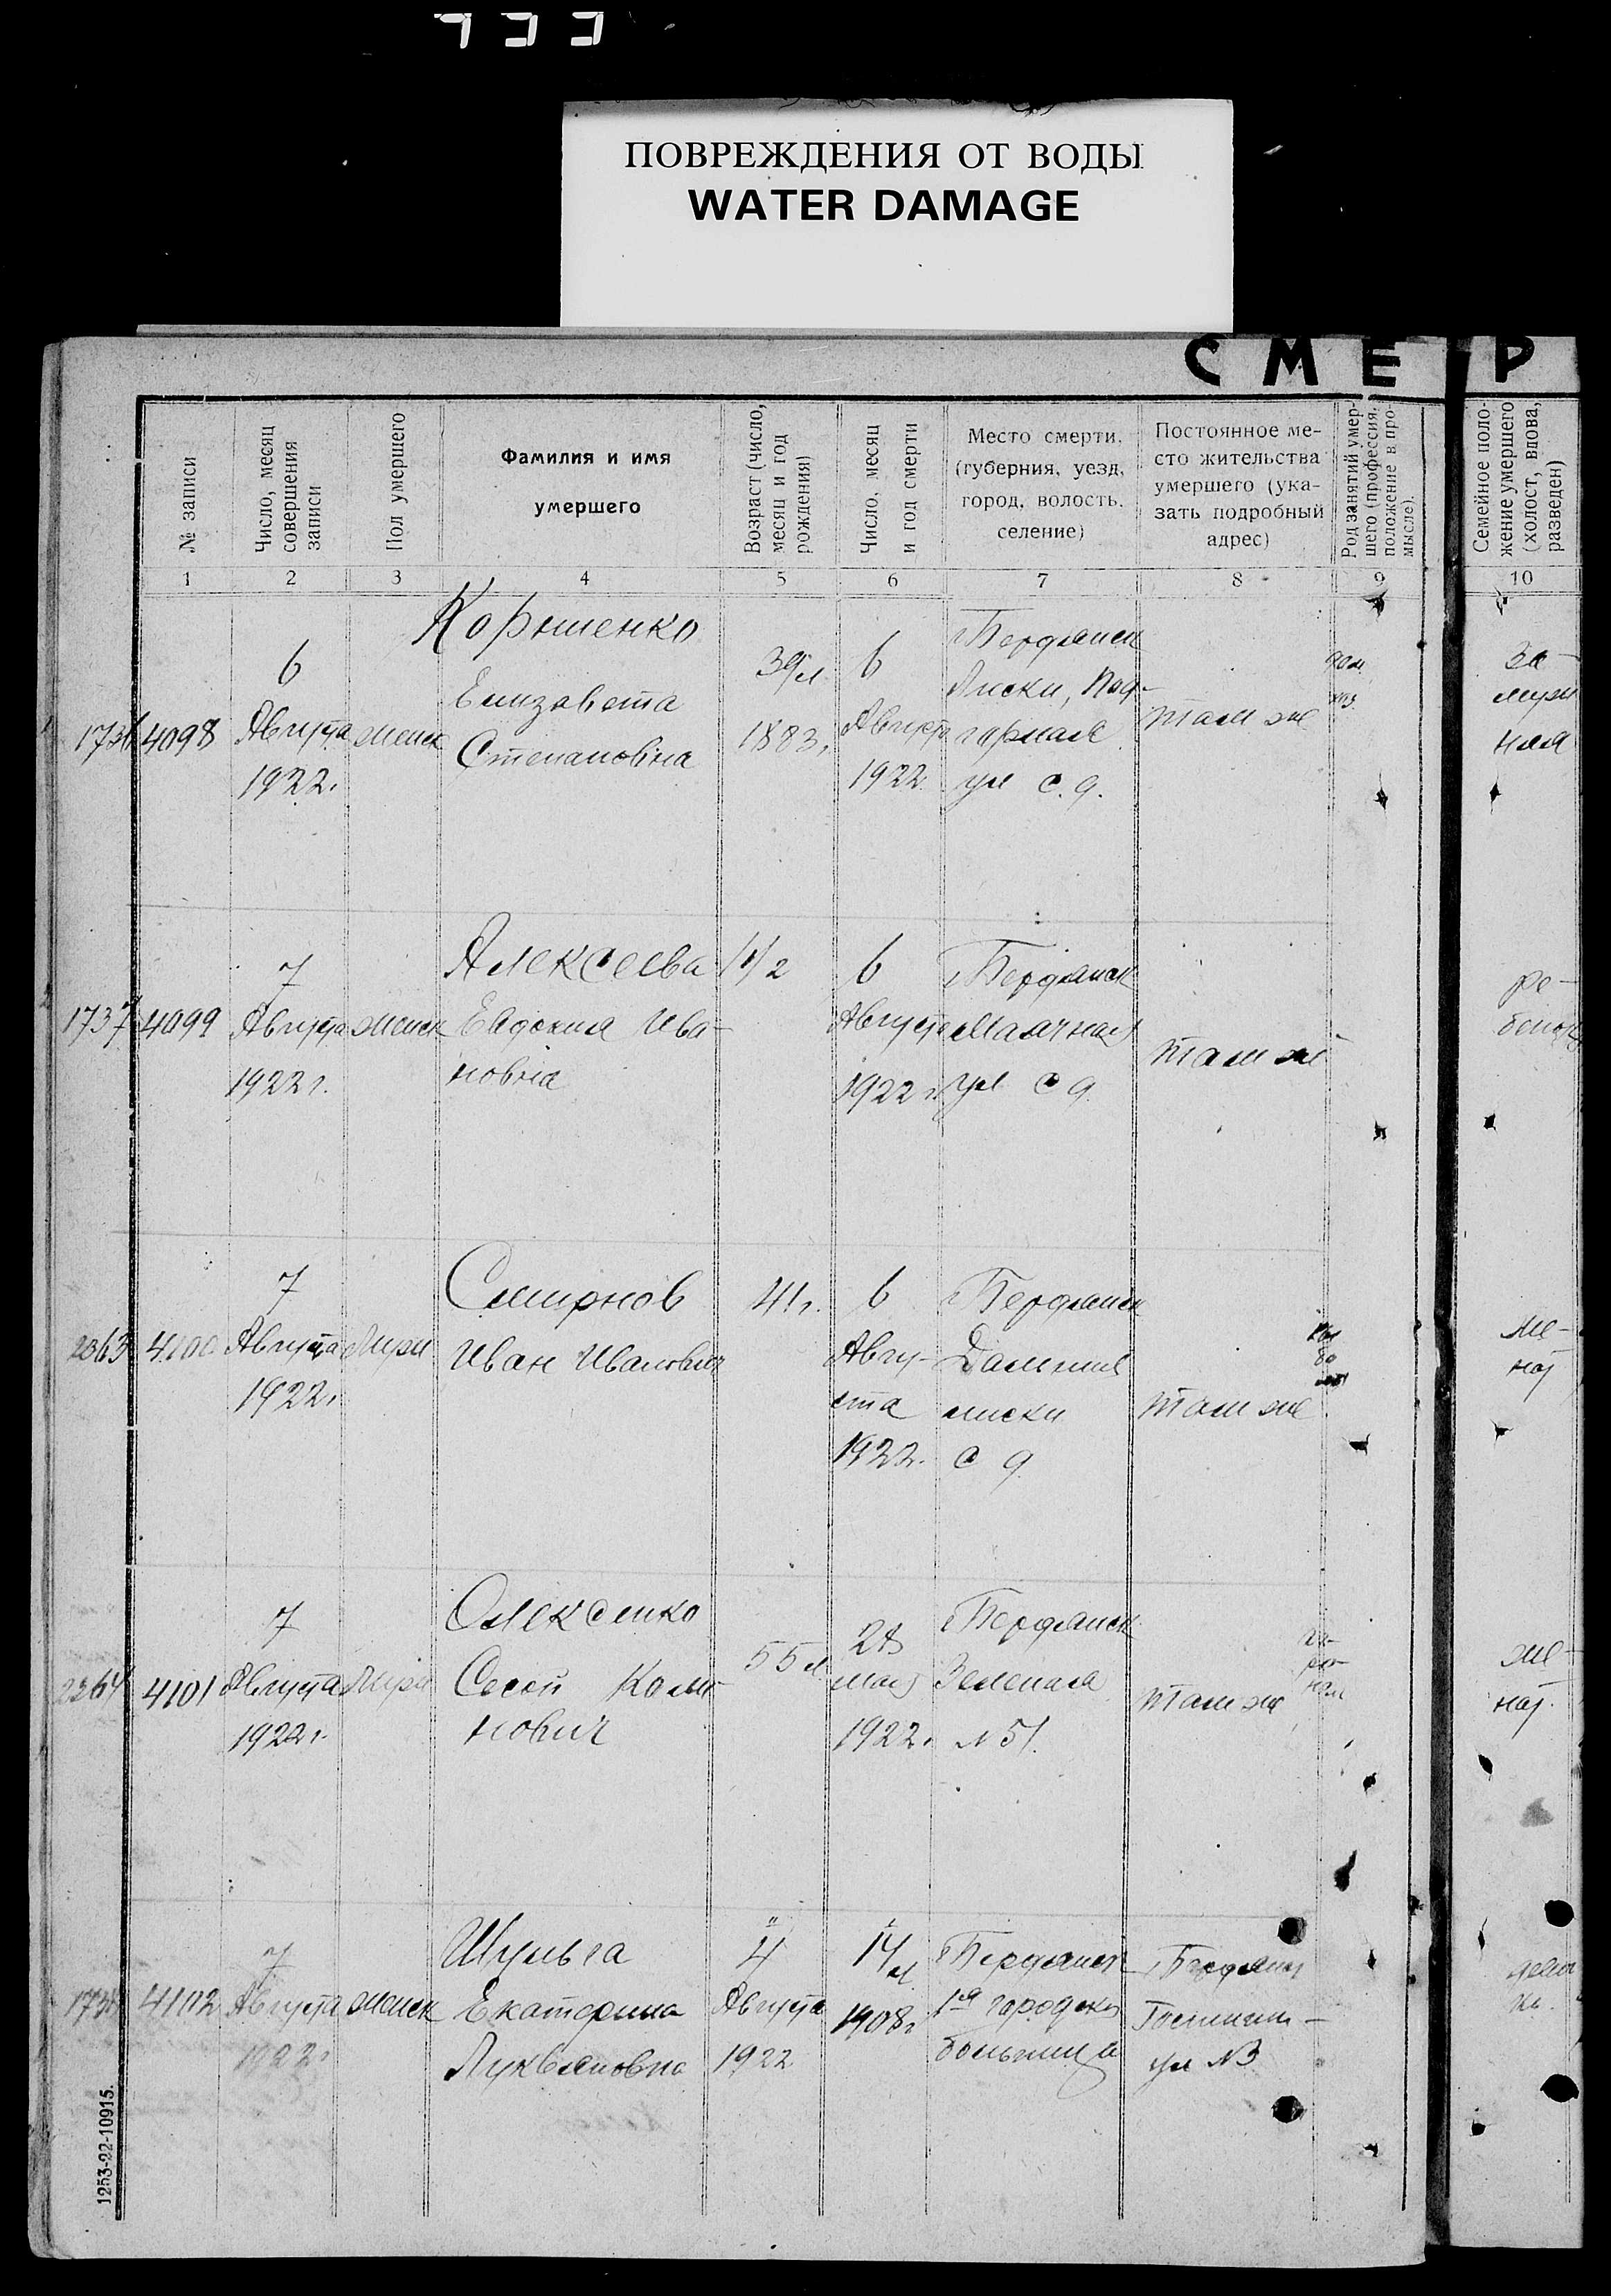 ПОВРЕЖДЕНИЯ ОТ ВОДЫ
WATER DAMAGE
СМЕР
№ записи
Число, месяц
совершения
записи
Пол умершего
Фамилия и имя
умершего
Возраст (число,
месяц и год
рождения)
Число, месяц
и год смерти
Место смерти,
(губерния, уезд,
город, волость,
селение)
Постоянное ме-
сто жительства
умершего (ука-
зать подробный
адрес)
Род занятий умер-
шего (профессия,
положение в про-
мысле).
Семейное поло-
жение умершего
(холост, вдова,
разведен)
1 2 3 4 5 6 7 8 9 10
1736 4098
6
Августа
1922г.
женск
Елизавета
Степановна
39 л.
1883,
6
Августа
1922.
Бердянск
Лиски, Под-
горная
ул с.д.
там же
за-
муж
няя
1737 4099
7
Августа
1922 г.
женск
Алексеева
Евдокия Ива-
новна
1 1/2
6
Августа
1922 г.
Бердянск
Маячная
ул с д.
там же
ре-
бенок
4100
7
Августа
1922г.
Муж
Смирнов
Иван Иванович
41 г.
6
Авгу-
ста
1922.
Бердянск
Дальние
лиски
с д.
там же
же-
нат
4101
7
Августа
1922 г.
Муж
Олексенко
Сосой
нович
55 л
28
мая
1922г.
Бердянск
Зеленая
№ 51.
там же
же-
нат.
4102
7
Августа
1922г
женск
Шульга
Екатерина
Лукьяновна
4
Августа
1922
14
1908г
Бердянск
1ая городская
больница
Бердянск
ул №3
1253-22-10915.